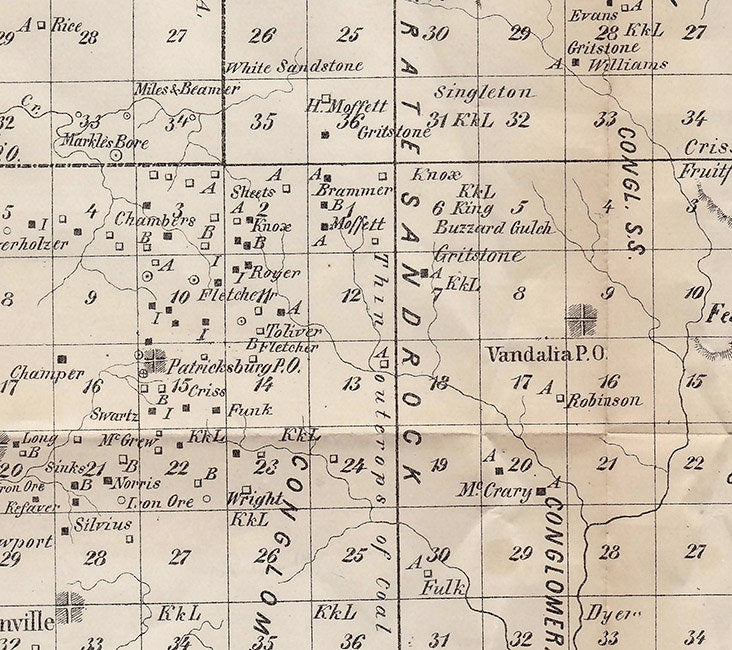 29 A Rice 28 27 A. 26 25 30 29 Evans A 28 KkL 27
Gritstone
A Williams
White Sandstone
Cr. Miles & Beamer
H. Moffett
Singleton
32 33 34 35 36 Gritstone 31 KkL 32 33 34
Markle's Bore
P.O.
Criss
Fruit
RATE SANDROCK
CONGL. S.S.
A A A Knox
Sheets Brammer KkL
5 I 4 3 A 2 B 1 6 King 5 4 3
Chambers B Knox Moffett Buzzard Gulch
erholzer B B B A
A I Gritstone
I Royer A
8 9 10 Fletcher 11 12 7 KkL 8 9 10
I I A
Toliver
B Fletcher
Vandalia P.O.
Champer Patricksburg P.O. A
17 16 15 Criss 14 13 18 17 A 16 15
B Robinson
Swartz I Funk
Long McGrew KkL KkL
B
20 Sinks 21 B 22 B 23 24 19 A 20 21 22
Iron Ore B Norris McCrary A
Kefauver Iron Ore Wright
Silvius KkL
wport
29 28 27 26 25 30 29 28 27
A
Fulk
Thin outcrops of Coal
CONGLOM
CONGLOMER.
nville KkL KkL Dyer
32 33 34 35 36 31 32 33 34